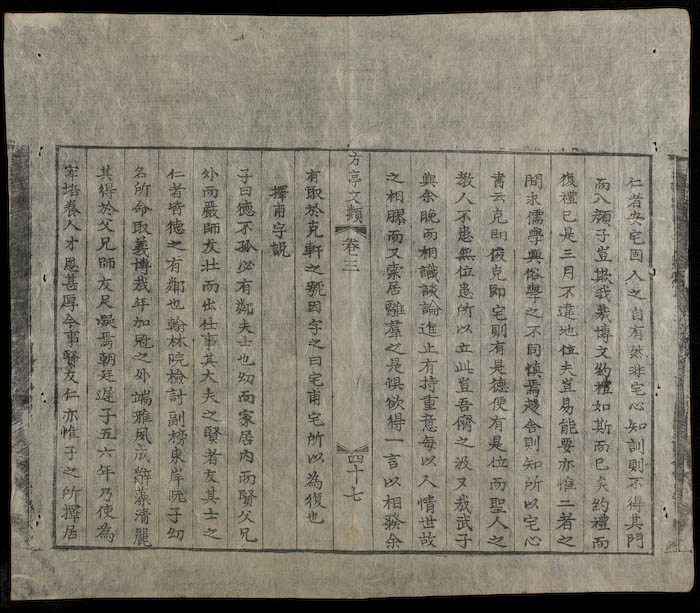 仁者安宅固人之自有然非宅心知訓則不得其門
而入顏子豈欺我哉博文約禮如斯而已矣約禮而
復禮已是三月不違地位夫豈易能要亦惟二者之
間求儒學與俗學之不同慎焉趨舍則知所以宅心
書云克即俊克即宅則有是德便有是位而聖人之
教人不患無位患所以立此豈吾儕之汲又哉武子
與余晚而相識談論進止有持重意每以人情世故
之相膠而又索居離羣之是懼欲得一言以相務余
方亭文類 卷三 四十七
有取於克軒之號因字之曰宅甫宅所以為復也
擇甫字說
子曰德不孤必有鄰夫士也幼而家居內而賢父兄
外而嚴師友壯而出仕事其大夫之賢者友其士之
仁者皆德之有鄰也翰林院檢討副榜東岸阮子幼
名所命取義博哉年加冠之外端雅夙成辭藻清麗
其得於父兄師友足凝焉朝廷遲子五六年乃使為
宰培養人才恩甚厚今事賢友仁亦惟子之所擇居